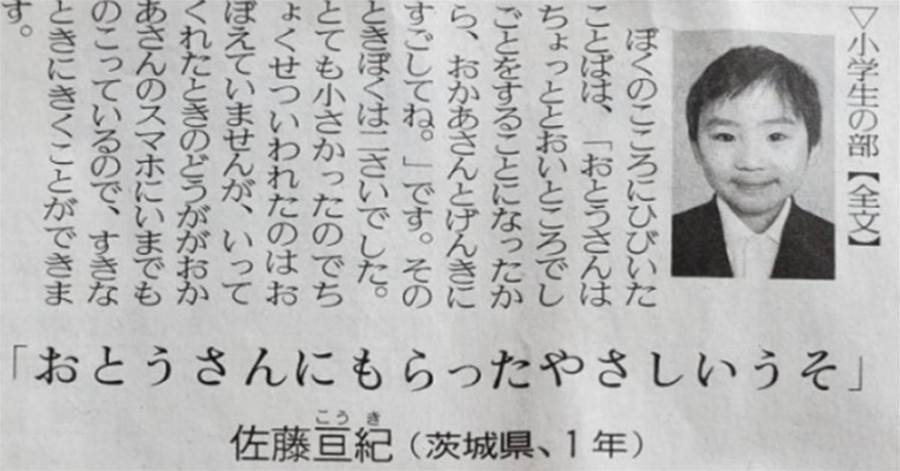 ▽小学生の部【全文】
ぼくのこころにひびいた
ことばは、「おとうさんは
ちょっととおいところでし
ごとをすることになったか
ら、おかあさんとげんきに
すごしてね。」です。その
ときぼくは二さいでした。
とても小さかったのでち
ょくせついわれたのはお
ぼえていませんが、いって
くれたときのどうががおか
あさんのスマホにいまでも
のこっているので、すきな
ときにきくことができま
す。
「おとうさんにもらったやさしいうそ」
こうき
佐藤亘紀（茨城県、1年）